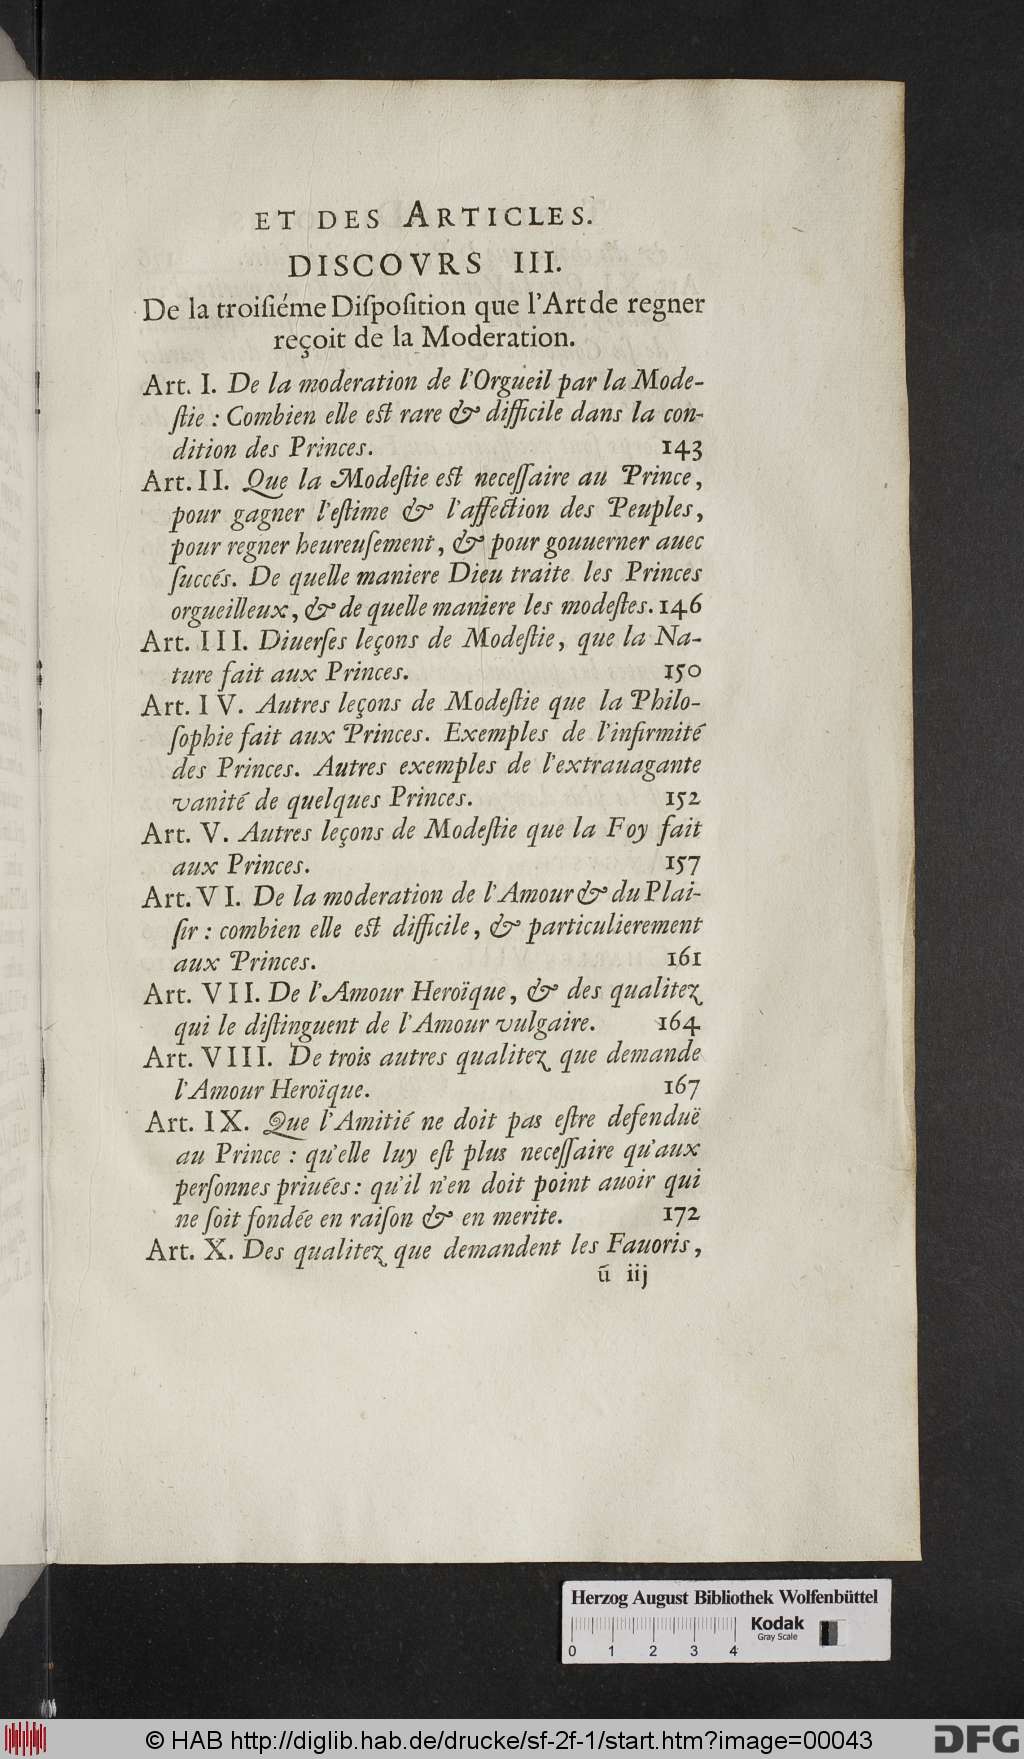 ET DES ARTICLES.
DISCOVRS III.
De la troiſiéme Diſpoſition que l'Art de regner
reçoit de la Moderation.
Art. I. De la moderation de l'Orgueil par la Mode-
ſtie : Combien elle eſt rare & difficile dans la con-
dition des Princes. 143
Art. II. Que la Modeſtie eſt neceſſaire au Prince,
pour gagner l'eſtime & l'affection des Peuples,
pour regner heureuſement, & pour gouuerner auec
ſuccés. De quelle maniere Dieu traite les Princes
orgueilleux, & de quelle maniere les modeſtes. 146
Art. III. Diuerſes leçons de Modeſtie, que la Na-
ture fait aux Princes. 150
Art. IV. Autres leçons de Modeſtie que la Philo-
ſophie fait aux Princes. Exemples de l'infirmité
des Princes. Autres exemples de l'extrauagante
vanité de quelques Princes. 152
Art. V. Autres leçons de Modeſtie que la Foy fait
aux Princes. 157
Art. VI. De la moderation de l'Amour & du Plai-
ſir : combien elle eſt difficile, & particulierement
aux Princes. 161
Art. VII. De l'Amour Heroïque, & des qualitez
qui le diſtinguent de l'Amour vulgaire. 164
Art. VIII. De trois autres qualitez que demande
l'Amour Heroïque. 167
Art. IX. Que l'Amitié ne doit pas eſtre defenduë
au Prince : qu'elle luy eſt plus neceſſaire qu'aux
perſonnes priuées : qu'il n'en doit point auoir qui
ne ſoit fondée en raiſon & en merite. 172
Art. X. Des qualitez que demandent les Fauoris,
ũ iij
Herzog August Bibliothek Wolfenbüttel
Kodak
Gray Scale
0 1 2 3 4
© HAB http://diglib.hab.de/drucke/sf-2f-1/start.htm?image=00043
DFG